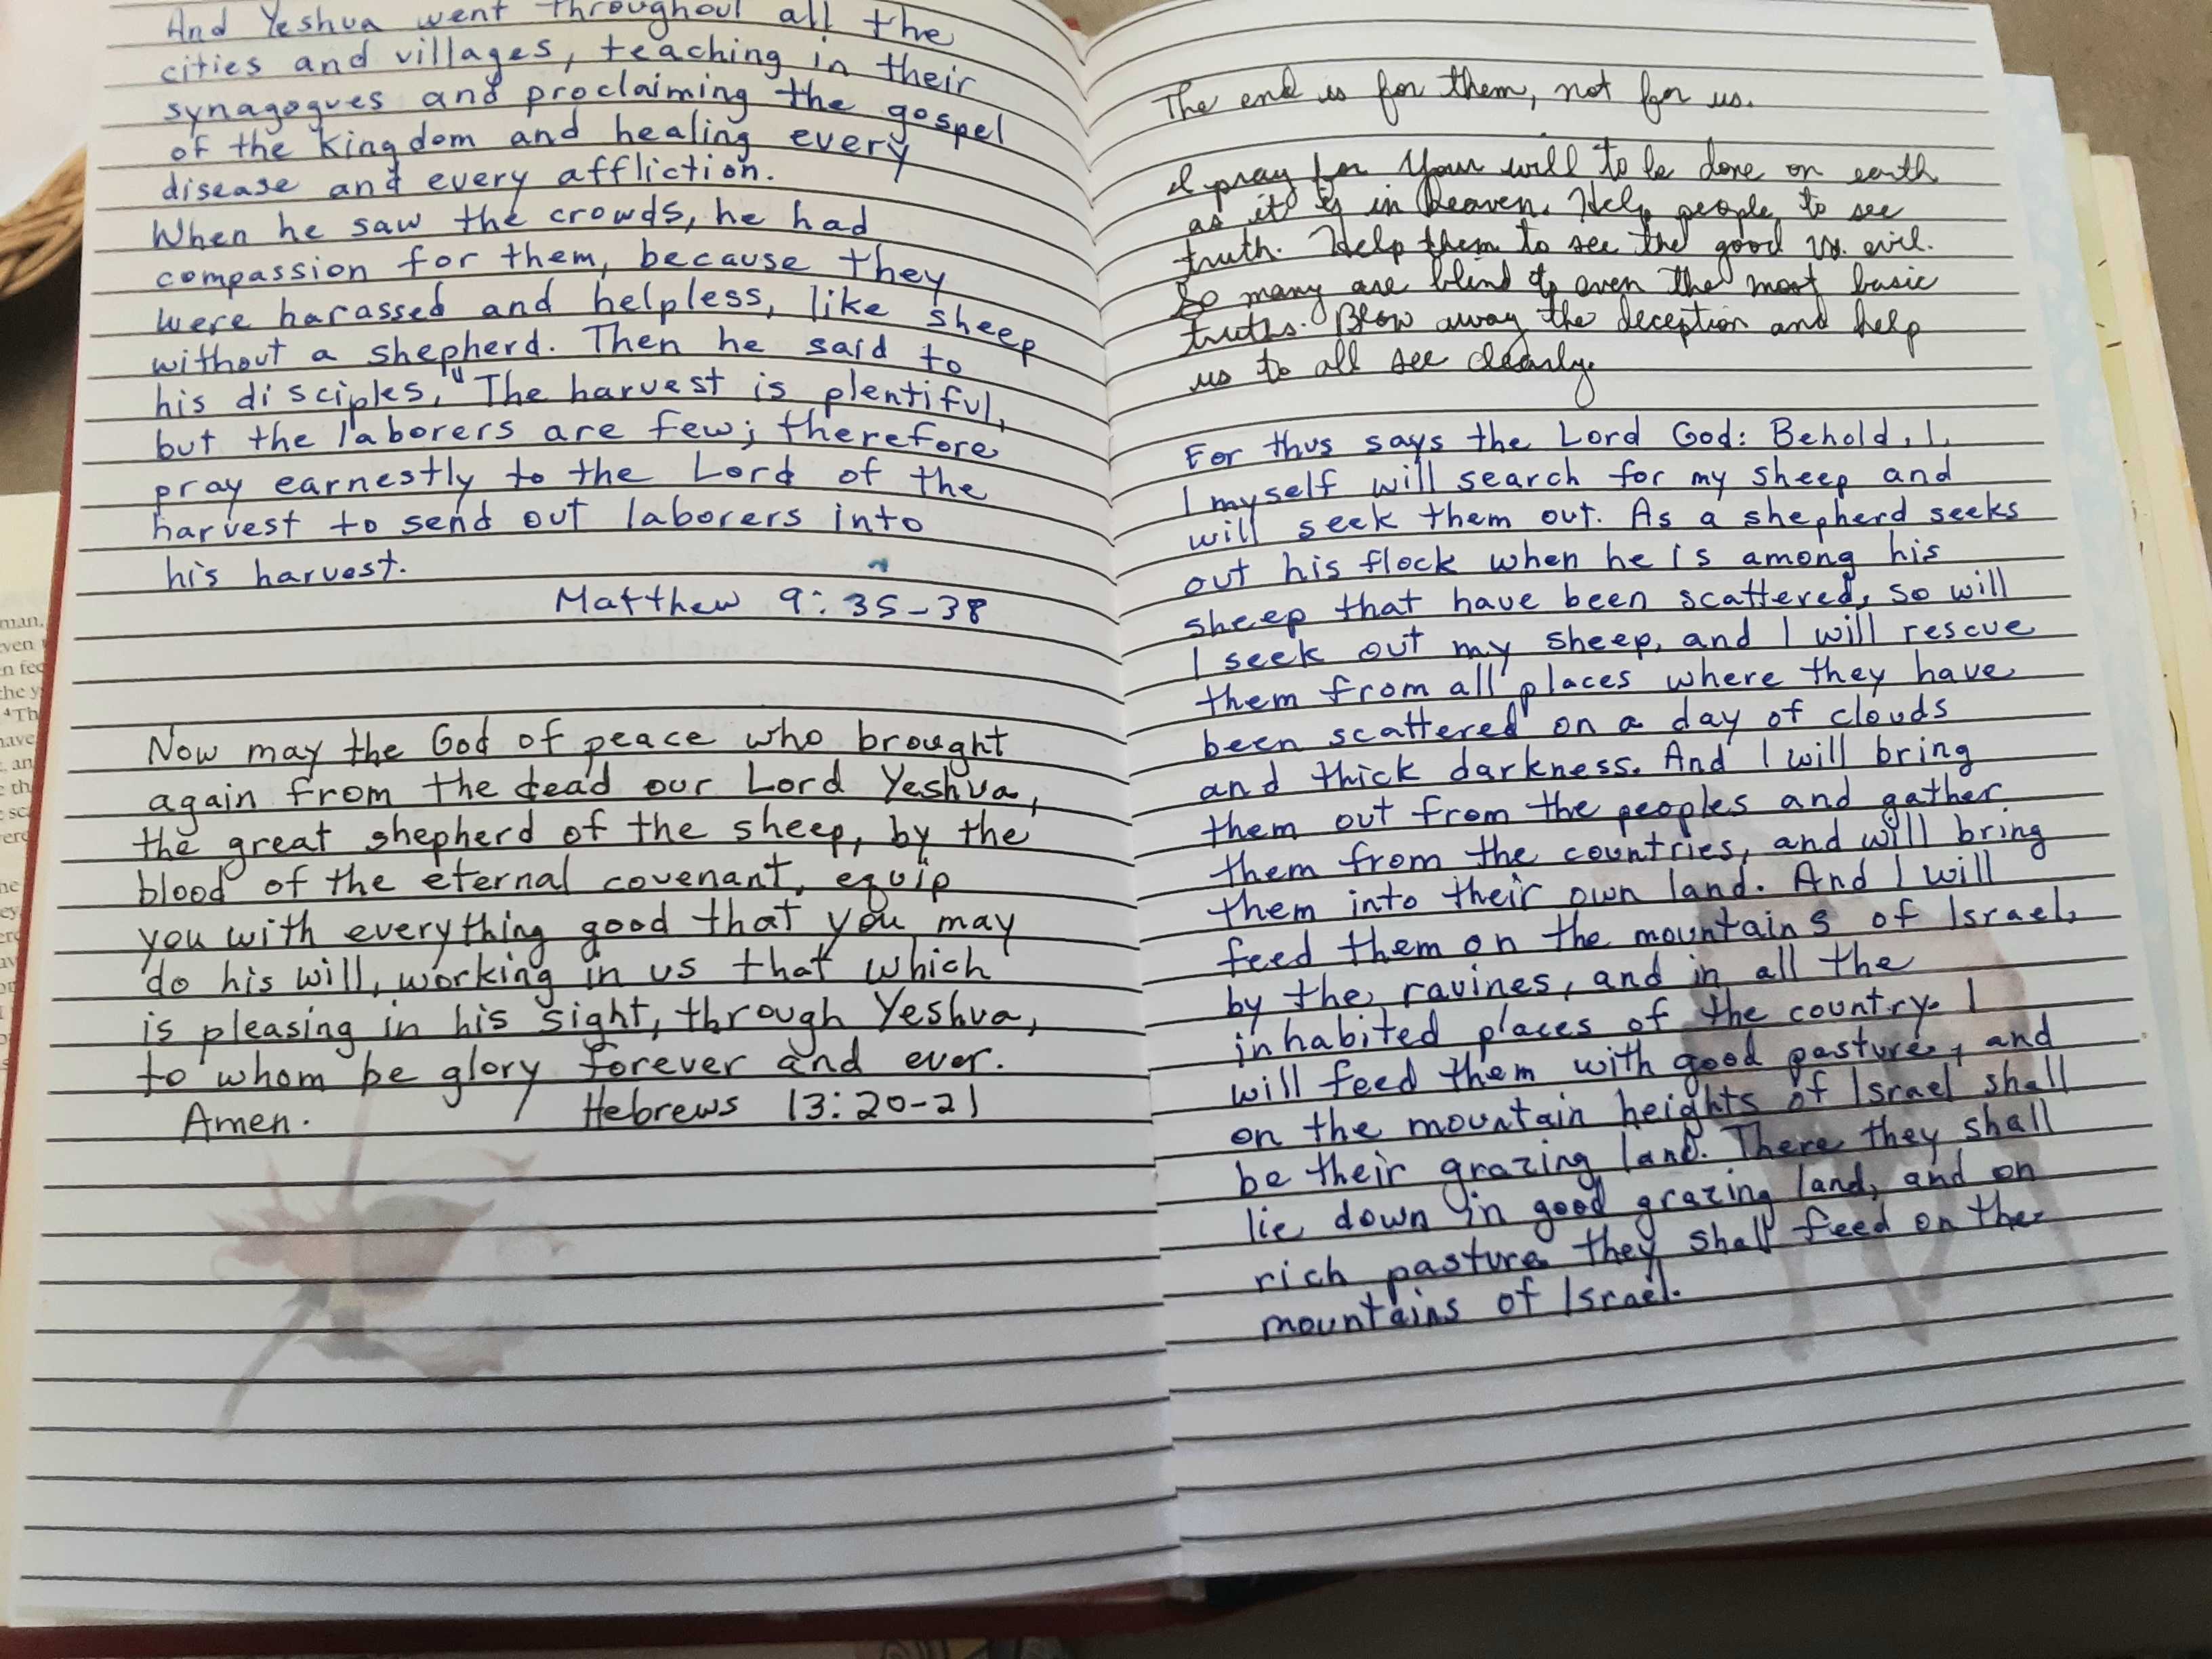 And Yeshua went throughout all the
cities and villages, teaching in their
synagogues and proclaiming the gospel
of the kingdom and healing every
disease and every affliction.
When he saw the crowds, he had
compassion for them, because they
were harassed and helpless, like sheep
without a shepherd. Then he said to
his disciples, "The harvest is plentiful,
but the laborers are few; therefore
pray earnestly to the Lord of the
harvest to send out laborers into
his harvest.
Matthew 9:35-38
Now may the God of peace who brought
again from the dead our Lord Yeshua,
the great shepherd of the sheep, by the
blood of the eternal covenant, equip
you with everything good that you may
do his will, working in us that which
is pleasing in his sight, through Yeshua,
to whom be glory forever and ever.
Amen. / Hebrews 13:20-21
The end is for them, not for us.
I pray for Your will to be done on earth
as it is in heaven. Help people to see
truth. Help them to see the good vs. evil.
So many are blind to even the most basic
truths. Blow away the deception and help
us to all see clearly.
For thus says the Lord God: Behold, I,
I myself will search for my sheep and
will seek them out. As a shepherd seeks
out his flock when he is among his
sheep that have been scattered, so will
I seek out my sheep, and I will rescue
them from all places where they have
been scattered on a day of clouds
and thick darkness. And I will bring
them out from the peoples and gather
them from the countries, and will bring
them into their own land. And I will
feed them on the mountains of Israel,
by the ravines, and in all the
inhabited places of the country. I
will feed them with good pasture, and
on the mountain heights of Israel shall
be their grazing land. There they shall
lie down in good grazing land, and on
rich pasture they shall feed on the
mountains of Israel.